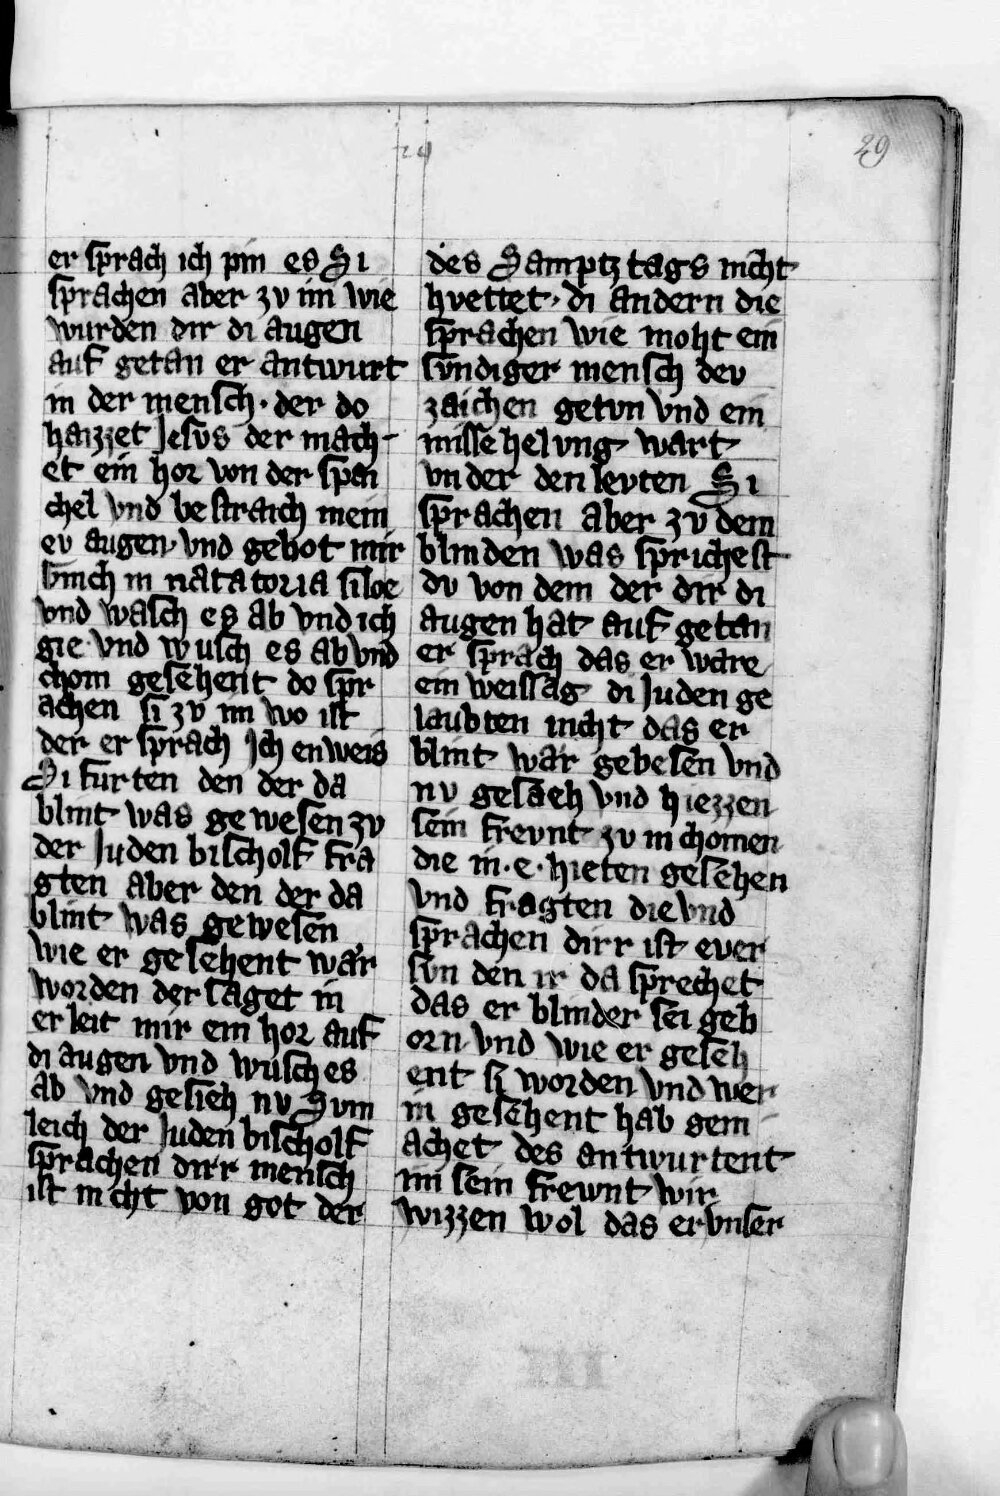 29
er sprach ich pin es Si
sprachen aber zv im wie
wurden dir di augen
auf getan er antwurt
in der mensch · der do
haizzet Jesvs der mach-
et ein hor von der spai
chel vnd bestraich mein
ev augen · vnd gebot mir
hinch in natatoria siloe
vnd wasch es ab vnd ich
gie · vnd wusch es ab vnd
chom gesehent do spr
achen si zv im wo ist
der er sprach Jch enweis
Si furten den der da
blint was gewesen zv
der Juden bischolf fra
gten aber den der da
blint was gewesen
wie er gesehent war
worden der saget in
er leit mir ein hor auf
di augen vnd wusch es
ab vnd gesieh nv Svm
leich der Juden bischolf
sprachen dirr mensch
ist nicht von got der
des Samptztags nicht
hvettet · di andern die
sprachen wie moht ein
svndiger mensch dev
zaichen getvn vnd ein
missehelvng wart
vnder den levten Si
sprachen aber zv dem
blinden was sprichest
dv von dem der dir di
augen hat auf getan
er sprach das er ware
ein weissag di Juden ge
laubten nicht das er
blint war gebesen vnd
nv gesaeh vnd hiezzen
sein frevnt zv in chomen
die in · e · hieten gesehen
vnd fragten die vnd
sprachen dirr ist ever
svn den ir da sprechet
das er blinder sei geb
orn vnd wie er geseh
ent si worden vnd wer
in gesehent hab gem
achet des antwurtent
im sein frewnt wir
wizzen wol das er vnser